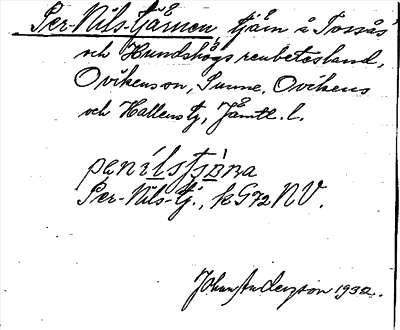 Per-Nils-tjärnen, tjärn å Tossås'
och Hundshögs renbetesland,
Ovikens sn, Sunne, Ovikens
och Hallens tg, Jämtl. l.
Per-Nils-tj., k G72 NV.
Johan Anderzon 1932.